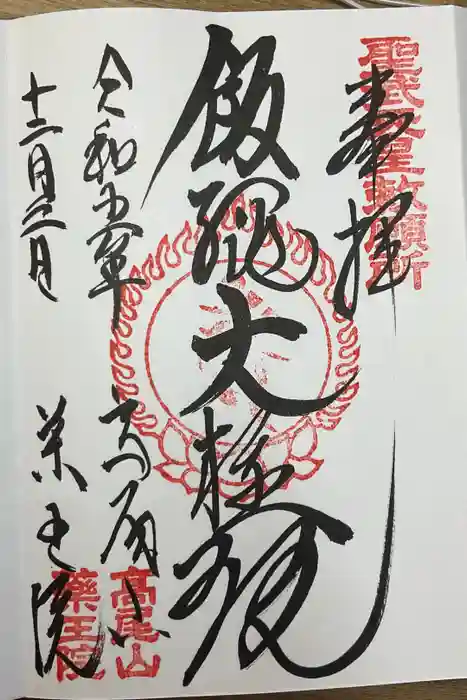 聖武天皇敕願所
奉拝
飯縄大権現
令和
高尾山
高尾山
十二月
薬王院
藥王院